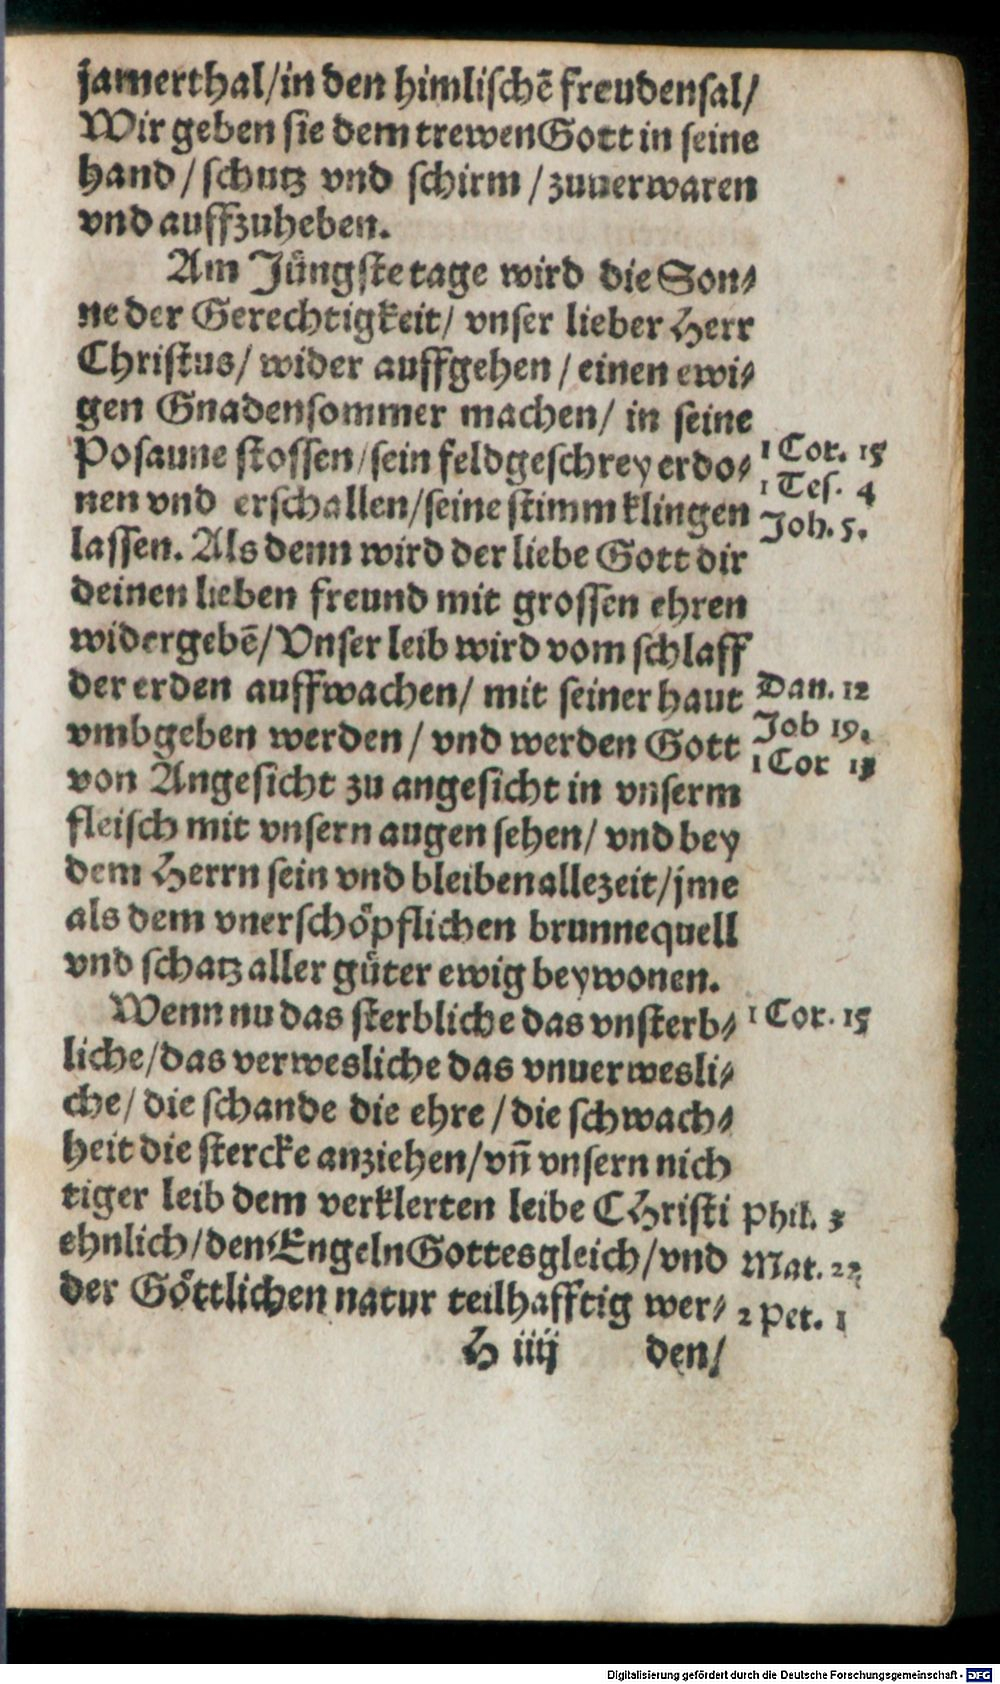 jamerthal/in den himlischẽ freudensal/
Wir geben sie dem trewen Gott in seine
hand/schutz vnd schirm/zuuerwaren
vnd auffzuheben.
Am Jüngste tage wird die Son⸗
ne der Gerechtigkeit/ vnser lieber Herr
Christus/ wider auffgehen/einen ewi⸗
gen Gnadensommer machen/ in seine
Posaune stossen/sein feldgeschrey erdo⸗
1 Cor. 15
nen vnd erschallen/seine stimm klingen
1 Tes. 4
lassen. Als denn wird der liebe Gott dir
Joh. 5.
deinen lieben freund mit grossen ehren
widergebẽ/Vnser leib wird vom schlaff
der erden auffwachen/ mit seiner haut
Dan. 12
vmbgeben werden/ vnd werden Gott
Job 19.
von Angesicht zu angesicht in vnserm
1 Cor 13
fleisch mit vnsern augen sehen/ vnd bey
dem Herrn sein vnd bleiben allezeit/jme
als dem vnerschöpflichen brunnequell
vnd schatz aller güter ewig beywonen.
Wenn nu das sterbliche das vnsterb⸗
1 Cor. 15
liche/das verwesliche das vnuerwesli⸗
che/ die schande die ehre/die schwach⸗
heit die stercke anziehen/vñ vnsern nich
tiger leib dem verklerten leibe CHristi
Phil. 3
ehnlich/den Engeln Gottes gleich/vnd
Mat. 22
der Göttlichen natur teilhafftig wer⸗
2 Pet. 1
H iiij
den/
Digitalisierung gefördert durch die Deutsche Forschungsgemeinschaft - DFG